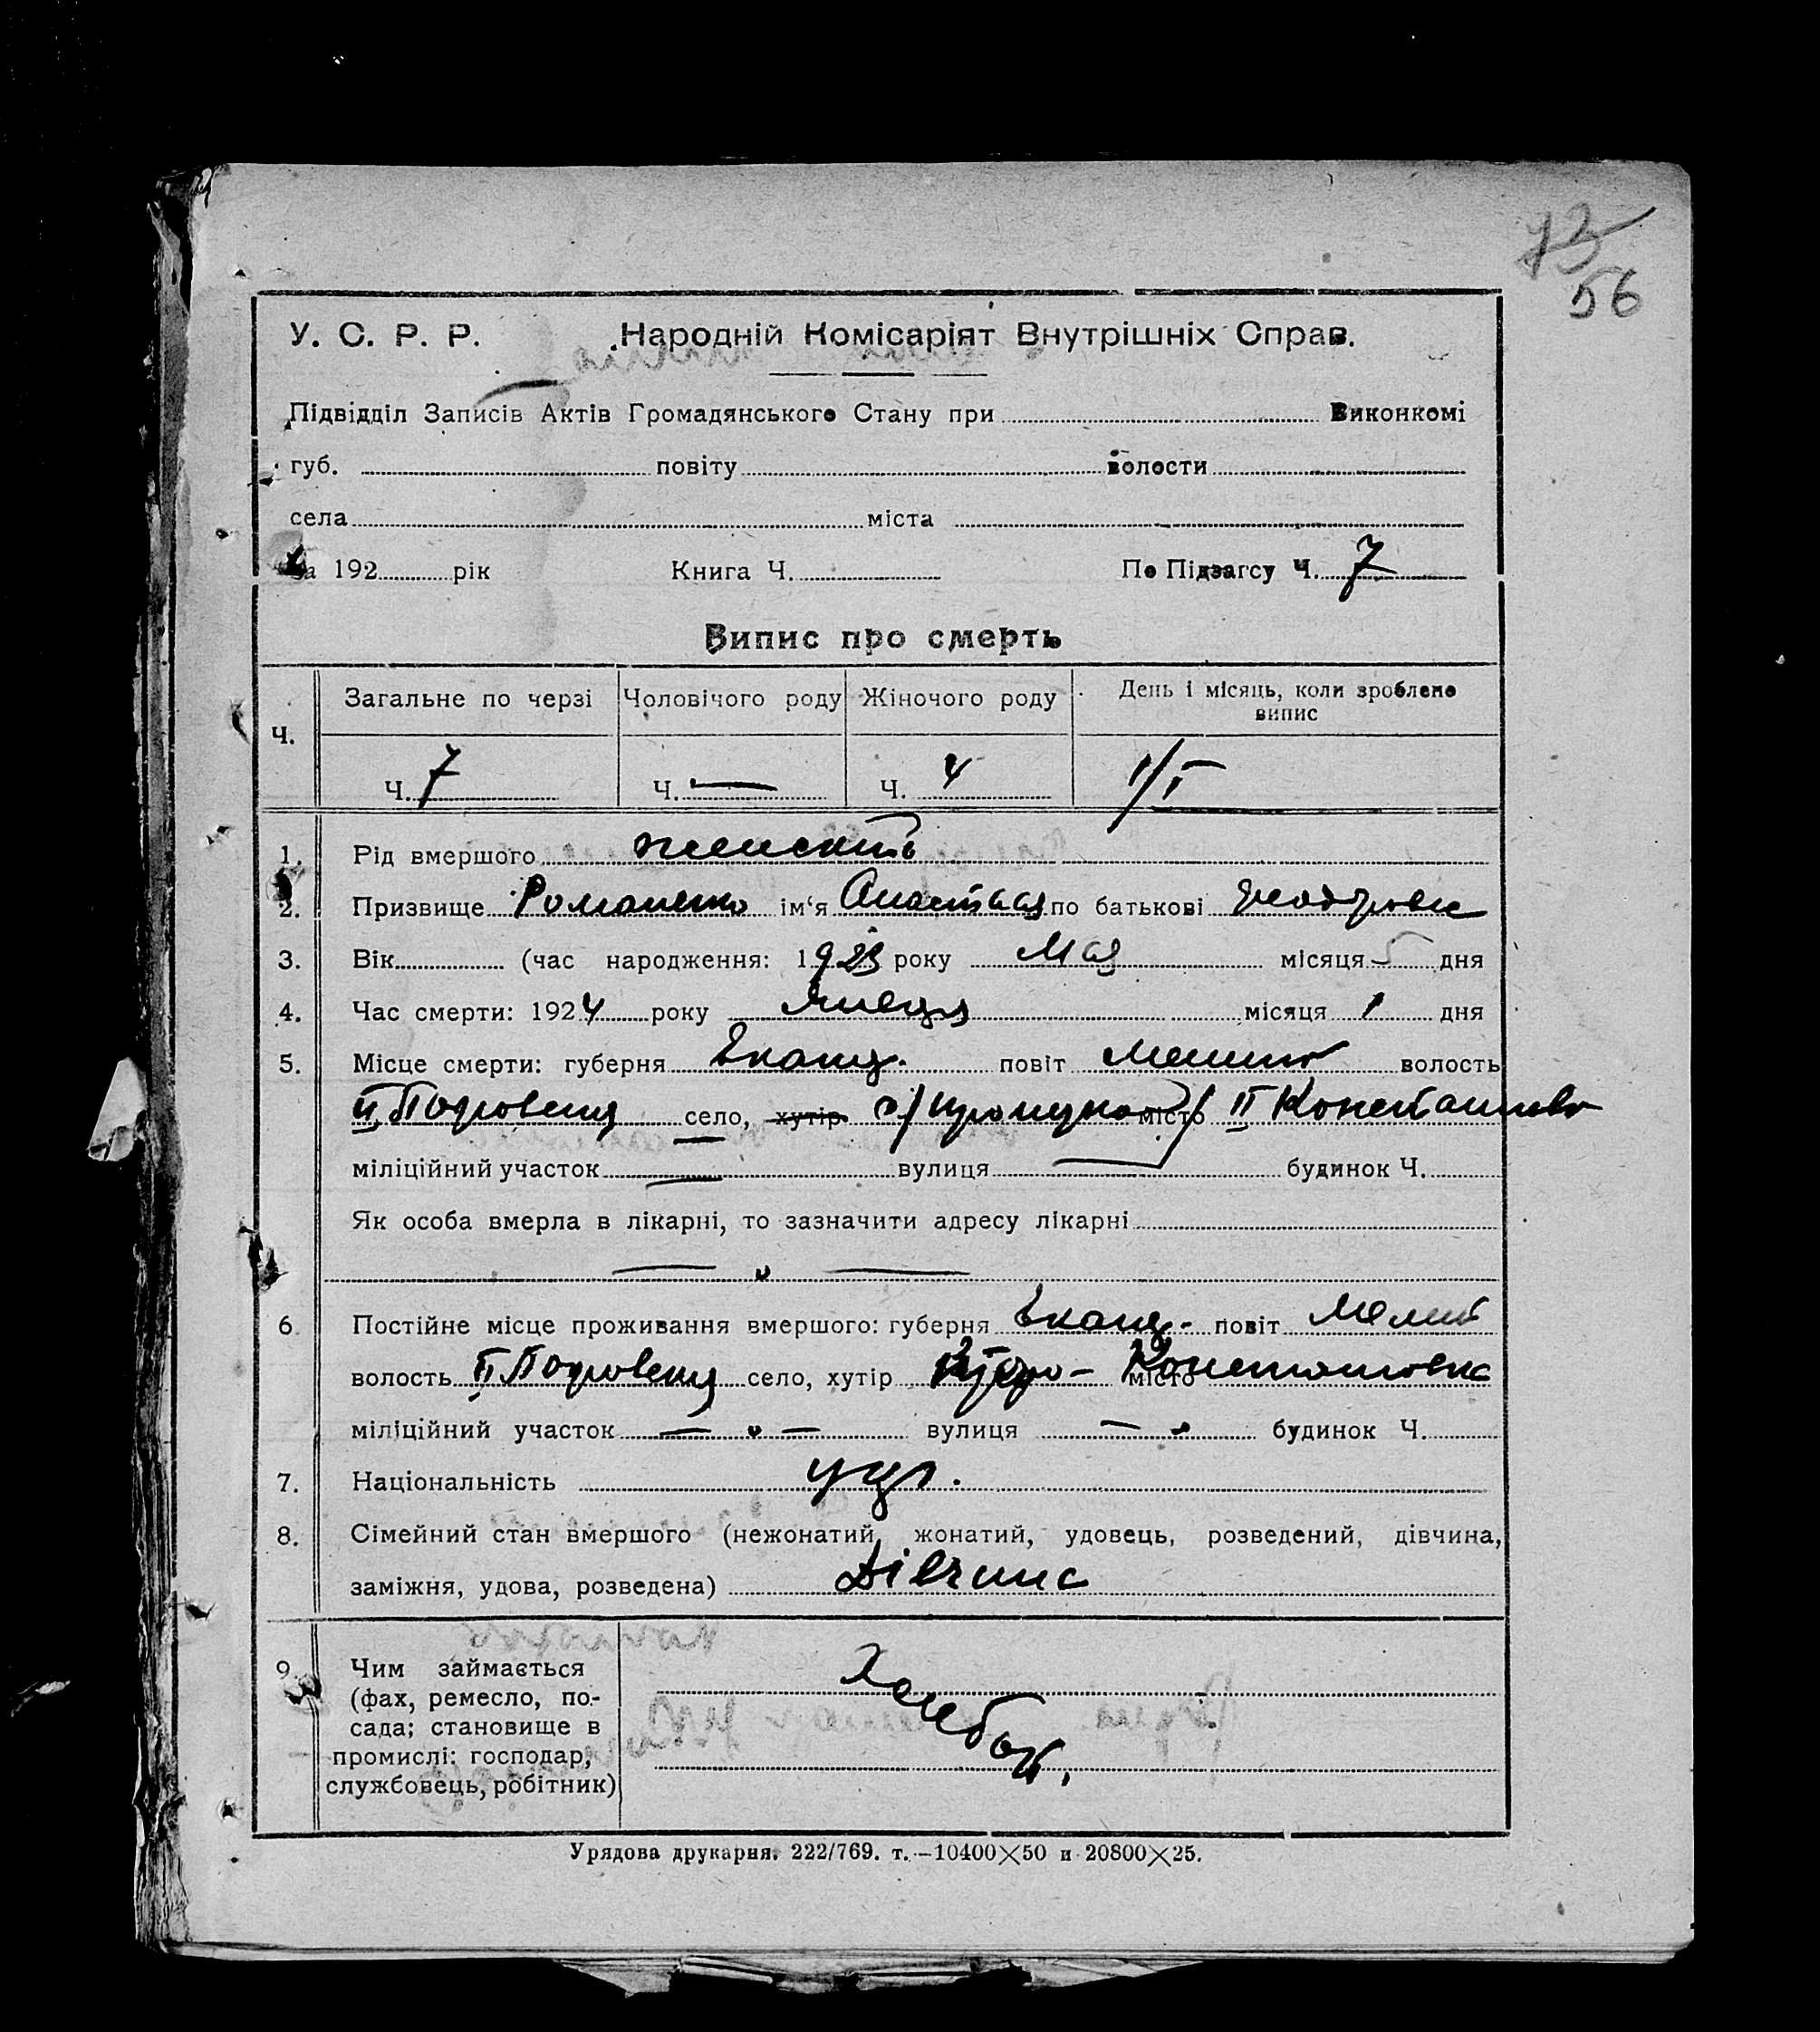 73
56
У. С. Р. Р. Народній Комісаріят Внутрішніх Справ.
Підвідділ Записів Актів Громадянського Стану при Виконкомі
губ. повіту волости
села міста
За 192 рік Книга Ч. По Підзагсу Ч. 7
Випис про смерть
Ч. Загальне по черзі Чоловічого роду Жіночого роду День і місяць, коли зроблено випис
Ч. 7 Ч. — Ч. 4 1/I
1. Рід вмершого женскій
2. Призвище Романенко ім‘я Анастасія по батькові
3. Вік (час народження: 1923 року Мая місяця 5 дня
4. Час смерти: 1924 року місяця 1 дня
5. Місце смерти: губерня Екат. повіт волость
II Покровська село, хутір місто II Константинов
міліційний участок — вулиця — будинок Ч.
Як особа вмерла в лікарні, то зазначити адресу лікарні
— „ —
6. Постійне місце проживання вмершого: губерня Екат. повіт Меліт
волость II Покровська село, хутір Втор- місто Константиновка
міліційний участок — „ — вулиця — „ будинок Ч.
7. Національність укр.
8. Сімейний стан вмершого (нежонатий, жонатий, удовець, розведений, дівчина,
заміжня, удова, розведена) Дівчина
9. Чим займається
(фах, ремесло, по-
сада; становище в
промислі: господар,
службовець, робітник)
Хлебоп.
Урядова друкарня. 222/769. т.—10400×50 и 20800×25.